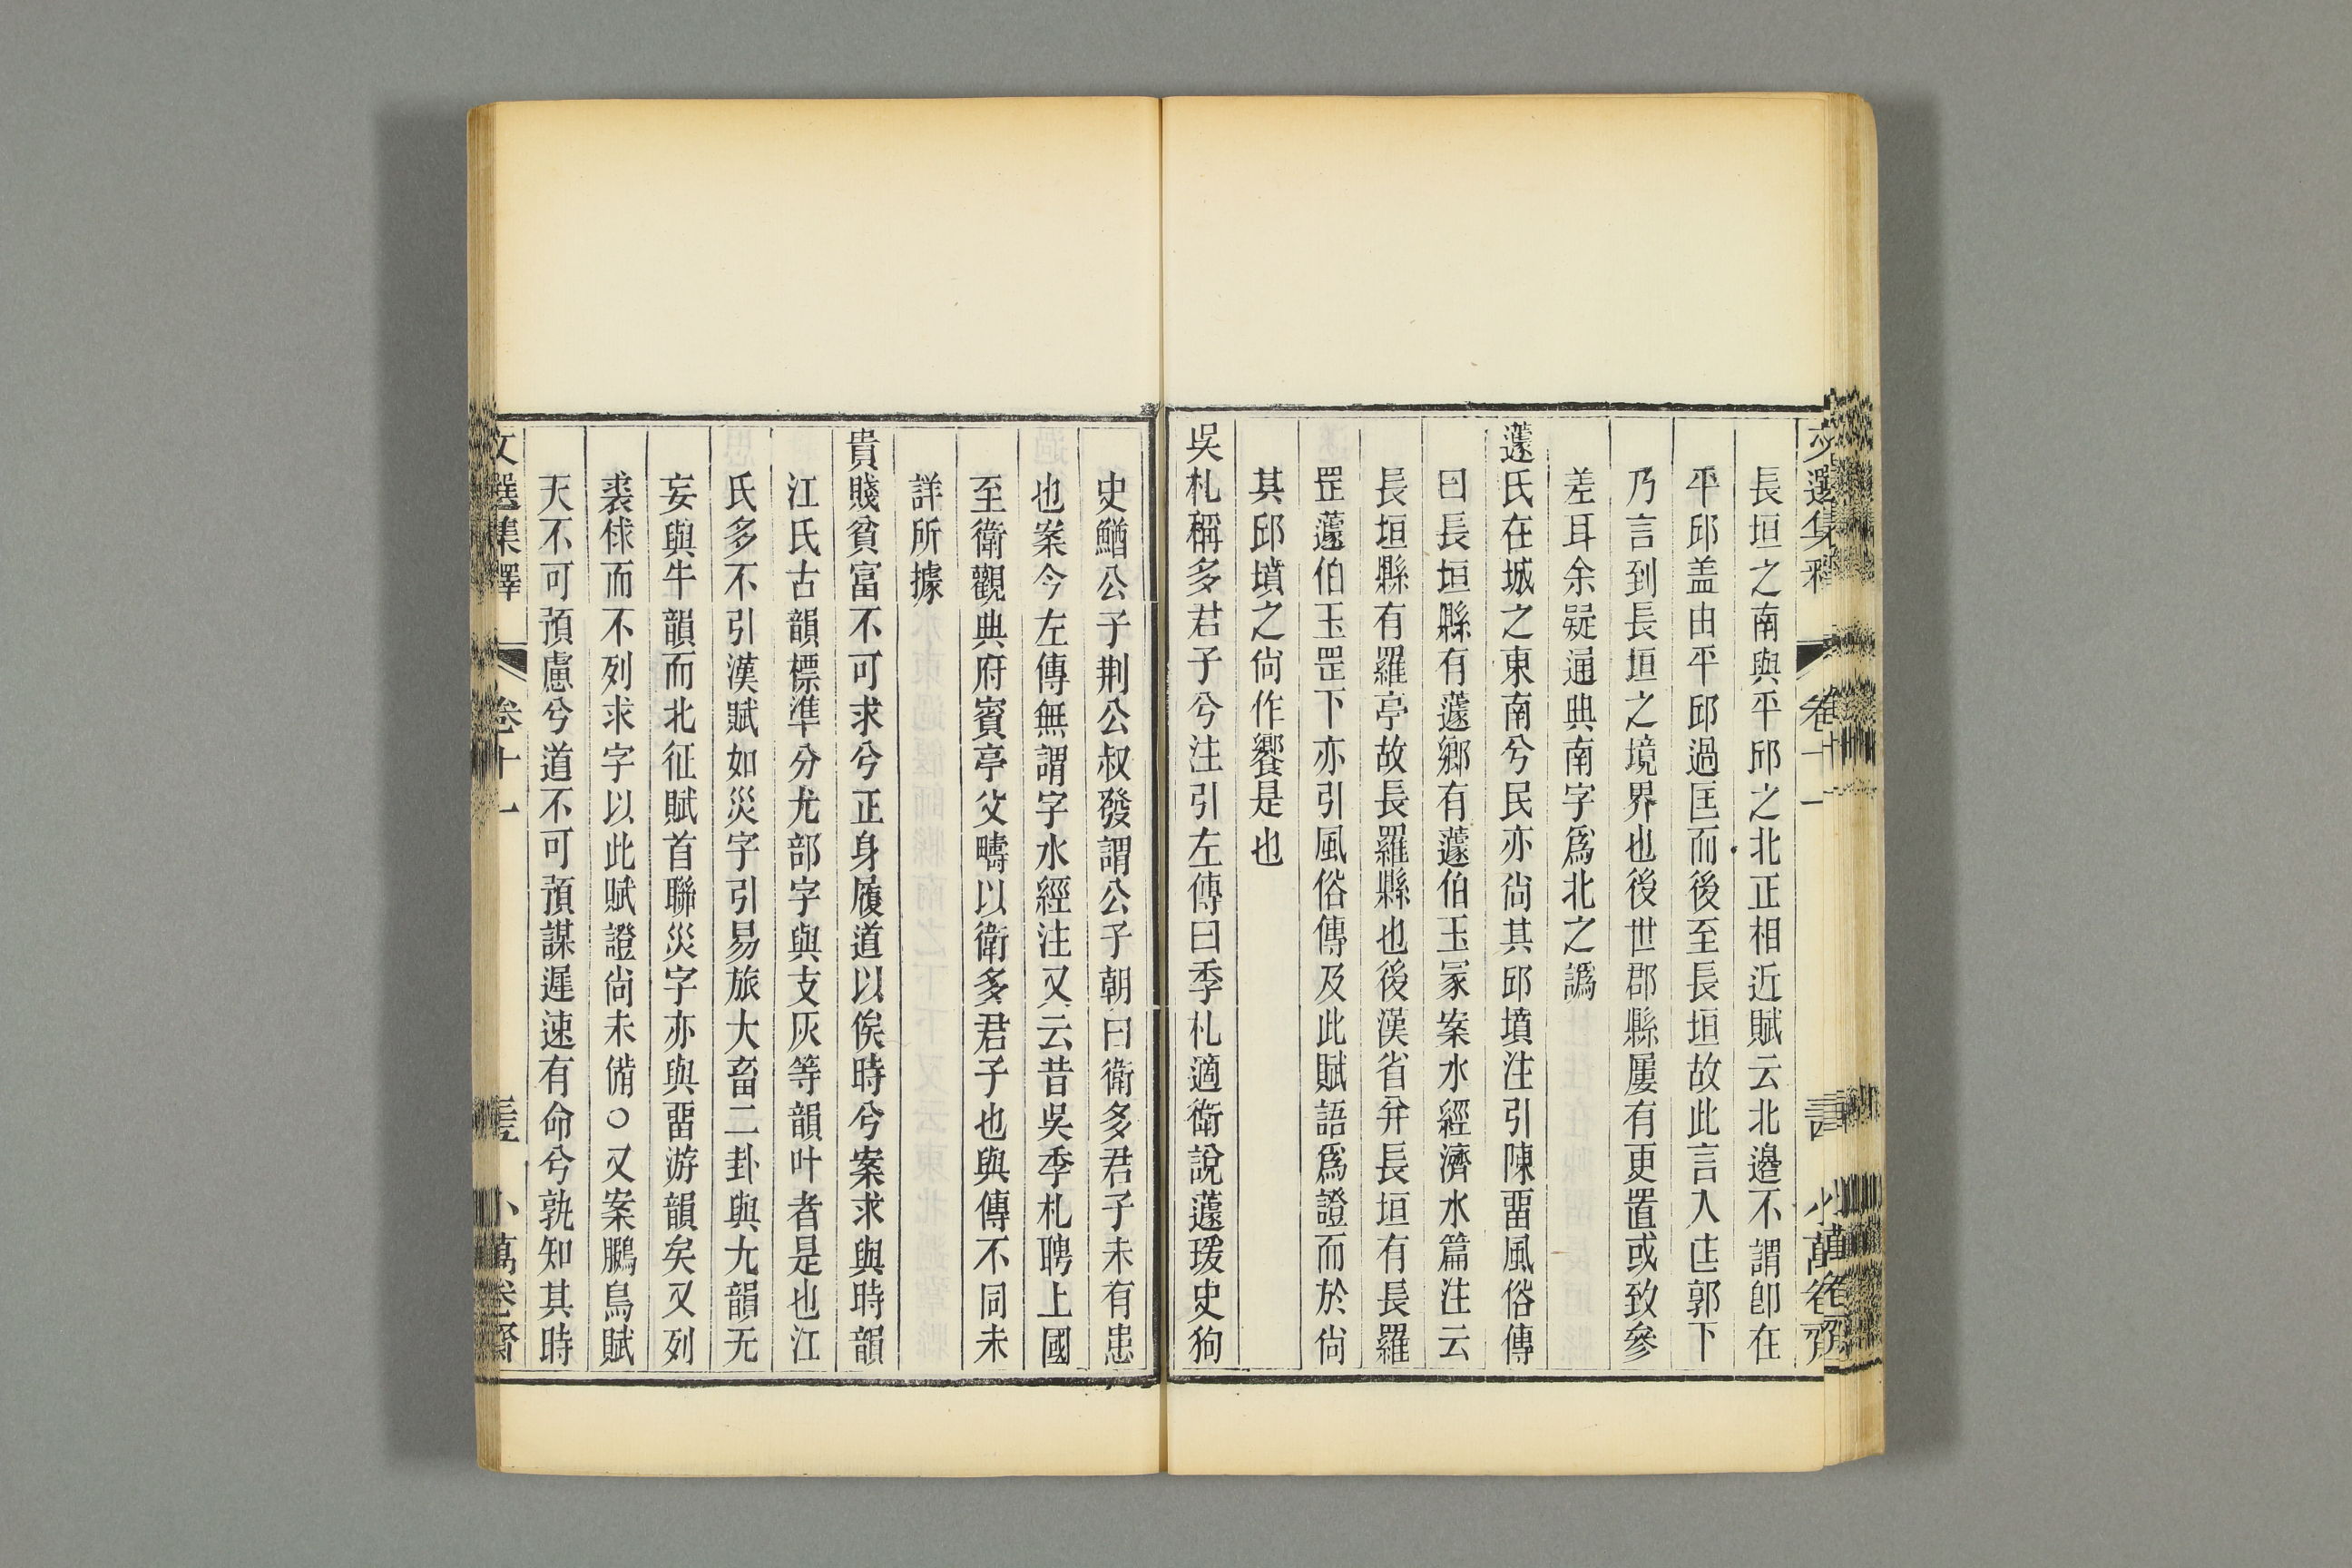 長垣之南與平邱之北正相近賦云北邊不謂卽在
平邱盖由平邱過匡而後至長垣故此言入匡郭下
乃言到長垣之境界也後世郡縣屢有更置或致參
差耳余疑通典南字爲北之譌
蘧氏在城之東南兮民亦尙其邱墳注引陳畱風俗傳
曰長垣縣有蘧鄉有蘧伯玉冢案水經濟水篇注云
長垣縣有羅亭故長羅縣也後漢省并長垣有長羅
罡蘧伯玉罡下亦引風俗傳及此賦語爲證而於尙
其邱墳之尙作饗是也
吳札稱多君子兮注引左傳曰季札適衛說蘧瑗史狗
史鰌公子荆公叔發謂公子朝曰衛多君子未有患
也案今左傳無謂字水經注又云昔吳季札聘上國
至衛觀典府賓亭父疇以衛多君子也與傳不同未
詳所據
貴賤貧富不可求兮正身履道以俟時兮案求與時韻
江氏古韻標準分尤部字與支灰等韻叶者是也江
氏多不引漢賦如災字引易旅大畜二卦與九韻无
妄與牛韻而北征賦首聯災字亦與畱游韻矣又列
裘俅而不列求字以此賦證尙未備○又案鵩鳥賦
天不可預慮兮道不可預謀遲速有命兮孰知其時
文選集釋 卷十一 小萬卷齋